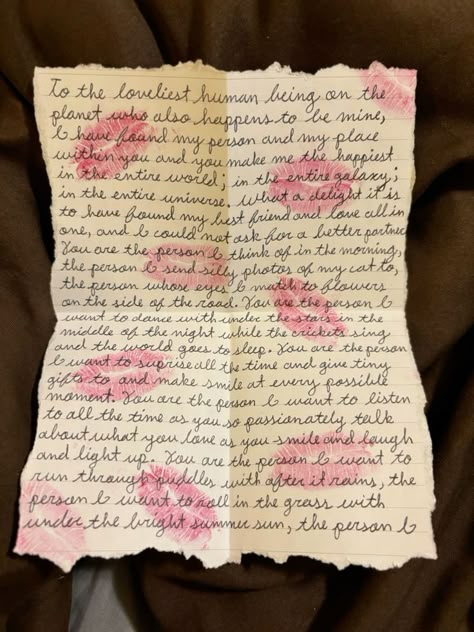 To the loveliest human being on the
planet who also happens to be mine,
I have found my person and my place
within you and you make me the happiest
in the entire world, in the entire galaxy,
in the entire universe. What a delight it is
to have found my best friend and love all in
one, and I could not ask for a better partner.
You are the person I think of in the morning,
the person I send silly photos of my cat to,
the person whose eyes I match to flowers
on the side of the road. You are the person I
want to dance with under the stars in the
middle of the night while the crickets sing
and the world goes to sleep. You are the person
I want to suprise all the time and give tiny
gifts to, and make smile at every possible
moment. You are the person I want to listen
to all the time as you so passionately talk
about what you love as you smile and laugh
and light up. You are the person I want to
run through puddles with after it rains, the
person I want to roll in the grass with
under the bright summer sun, the person I